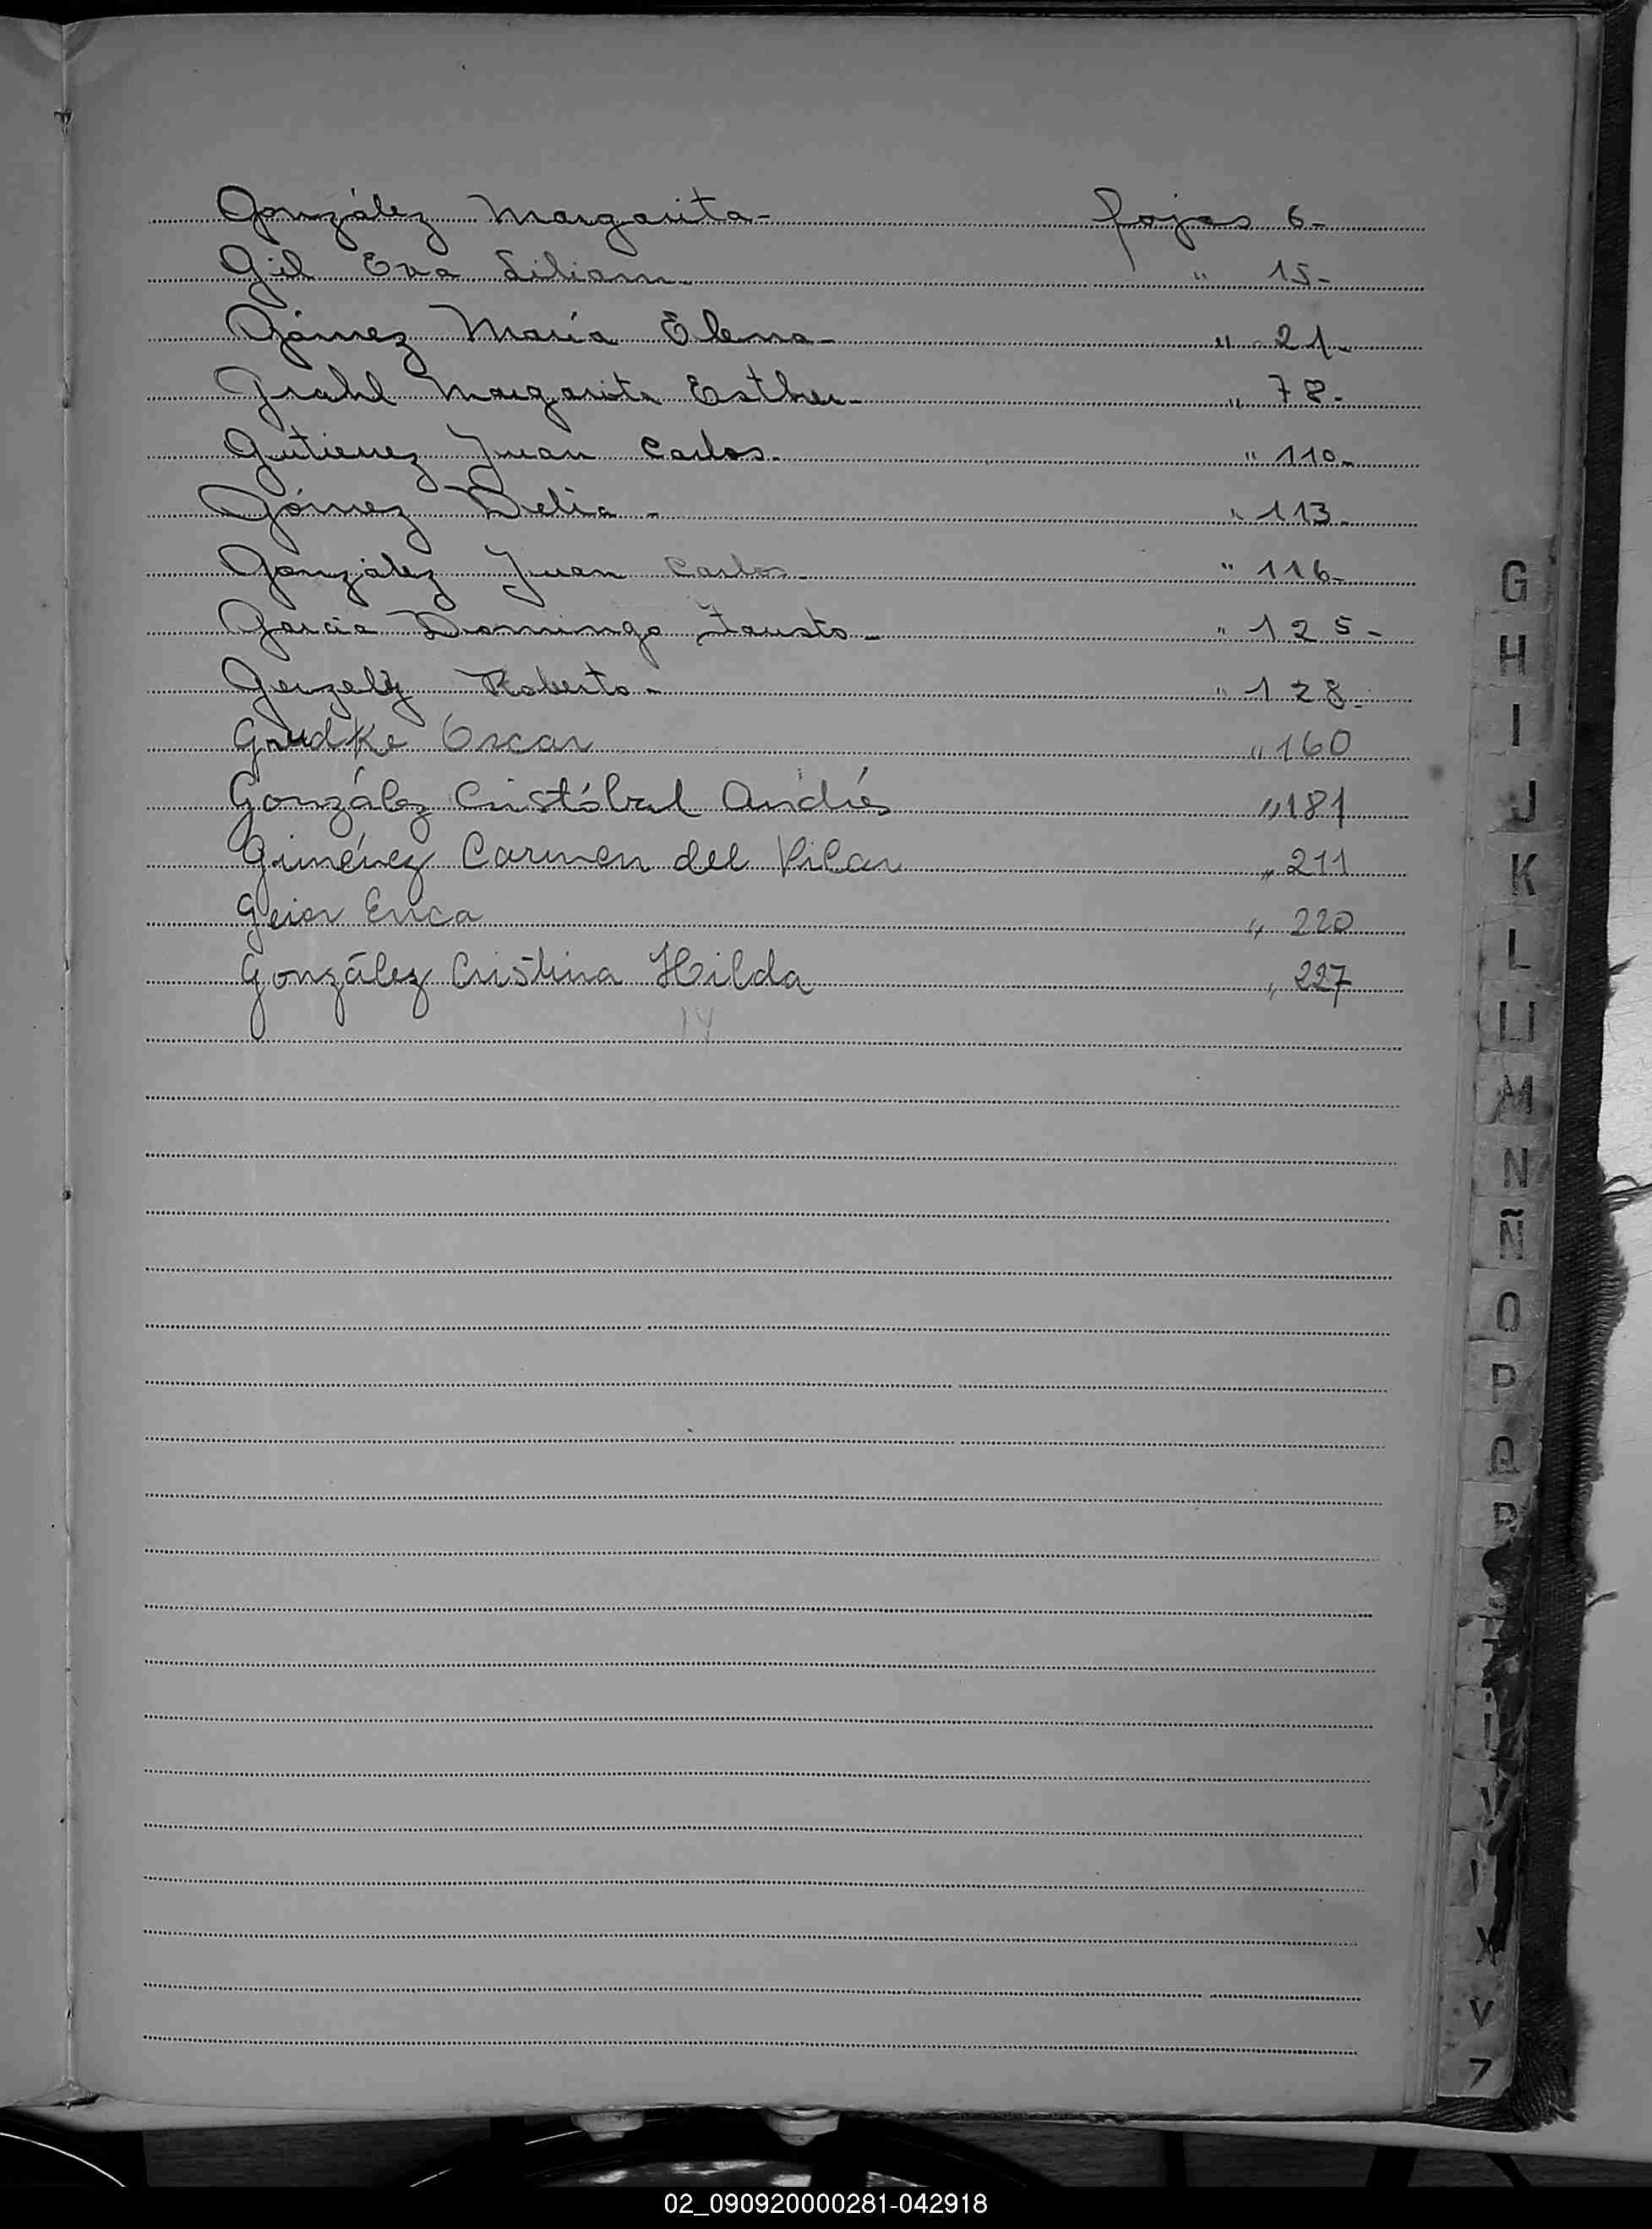 González Margarita- fojas 6-
Gil Eva Liliam- " 15-
Gómez María Elena- " 21-
Grahl Margarita Esther- " 78-
Gutierrez Juan Carlos- " 110-
Gómez Delia- " 113-
González Juan Carlos- " 116-
García Domingo Fausto- " 125-
Gerzely Roberto- " 128-
Grudke Oscar " 160
González Cristóbal Andrés " 181
Giménez Carmen del Pilar " 211
Geier Erica " 220
González Cristina Hilda " 227
14
G
H
I
J
K
L
LL
M
N
Ñ
O
P
Q
R
V
X
02_090920000281-042918